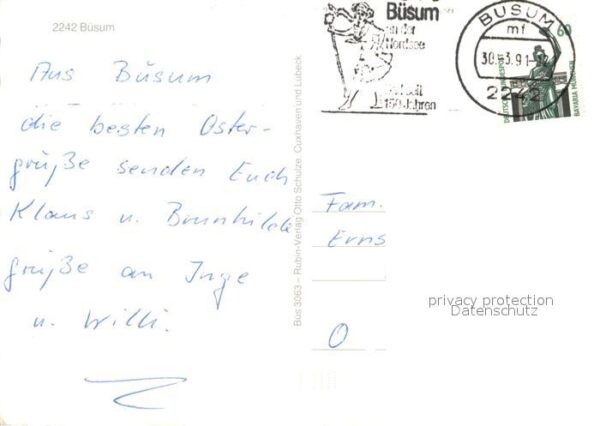 2242 Büsum
Aus Büsum
die besten Oster-
grüße senden Euch
Klaus u. Brunhilde
grüße an Inge
u. Willi.
Büs 3063 – Rubin-Verlag Otto Schulze, Cuxhaven und Lübeck
Büsum
an der
Nordsee
seit
150 Jahren
BÜSUM
mf
30.-3.91-12
2242
60
DEUTSCHE BUNDESPOST
BAVARIA MÜNCHEN
Fam.
Erns
O
privacy protection
Datenschutz